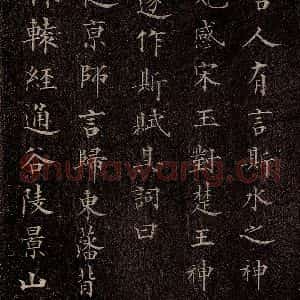 人有言斯水之神
感宋玉對楚王神
遂作斯賦其詞曰
亰師言歸東藩背
轅經通谷陵景山
Shufawang.Cn